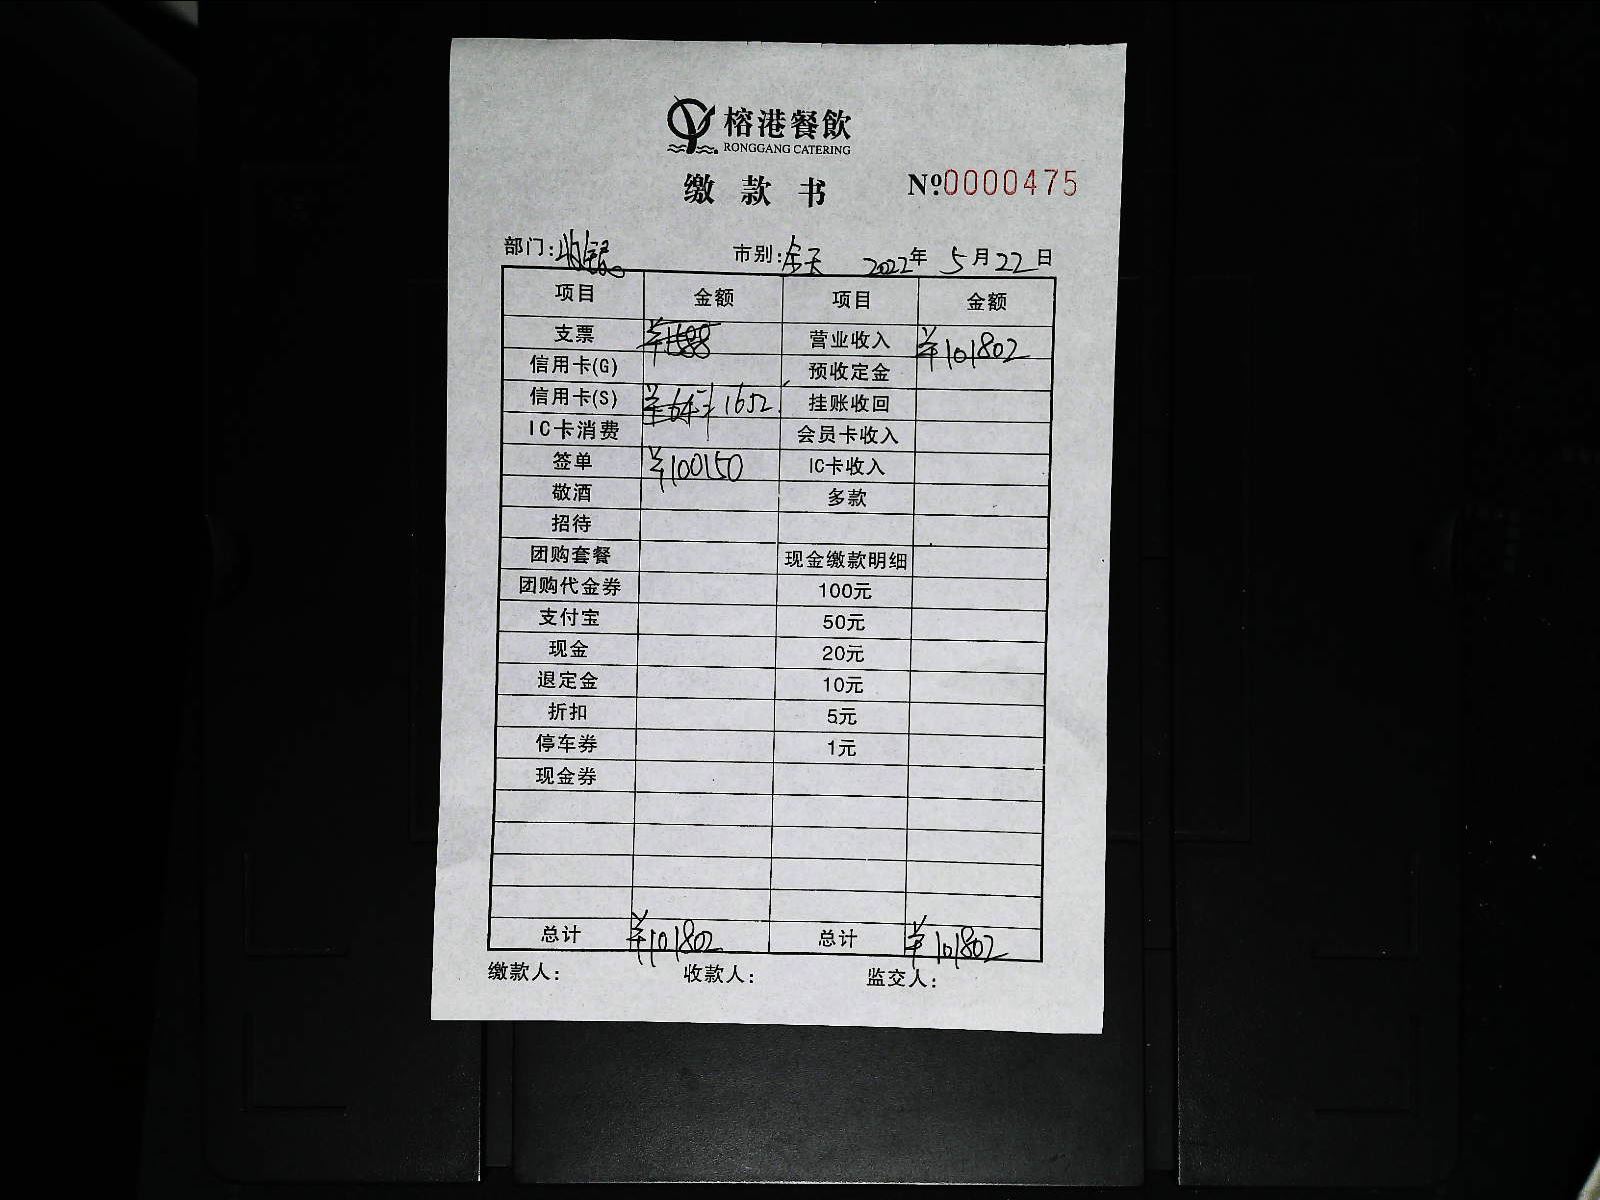 榕港餐飲
RONGGANG CATERING
缴款书 №0000475
部门:收银 市别:全天 2022年5月22日
项目 金额 项目 金额
支票 营业收入 ¥101802
信用卡(G) 预收定金
信用卡(S) 1652 挂账收回
IC卡消费 会员卡收入
签单 ¥100150 IC卡收入
敬酒 多款
招待
团购套餐 现金缴款明细
团购代金券 100元
支付宝 50元
现金 20元
退定金 10元
折扣 5元
停车券 1元
现金券
总计 ¥101802 总计 ¥101802
缴款人: 收款人: 监交人: